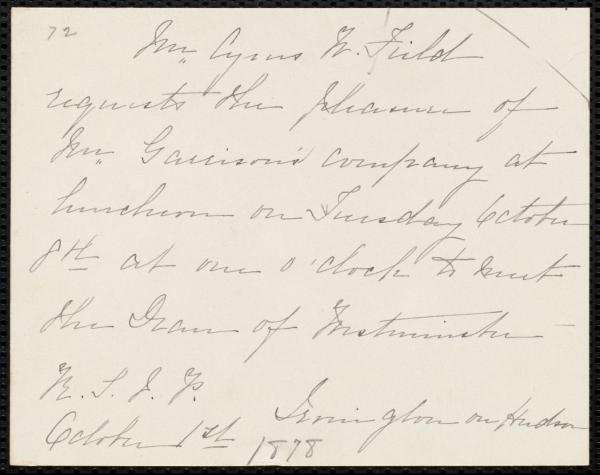 72
Mr. Cyrus W. Field
requests the pleasure of
Mr. Garrison's company at
luncheon on Tuesday October
8th at one o'clock to meet
the Dean of Westminster
R. S. V. P.
Irvington on Hudson
October 1st 1878